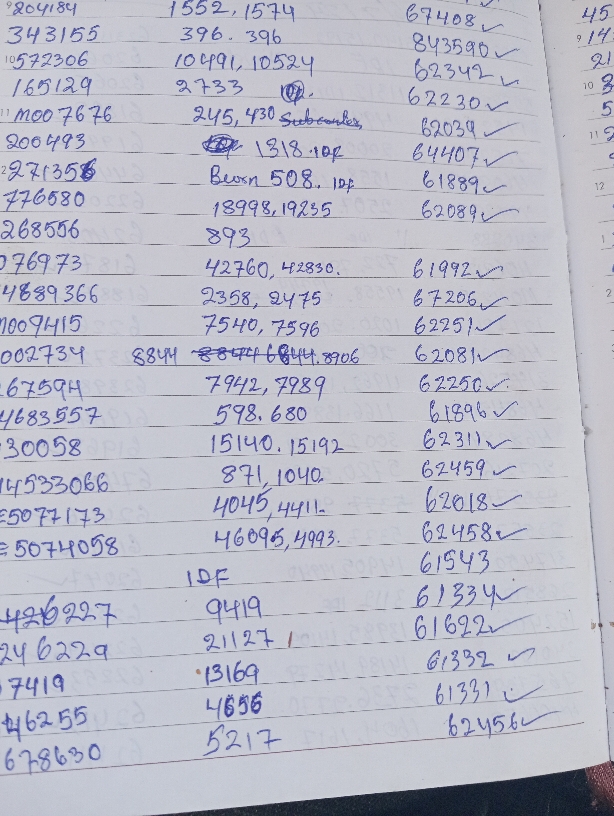 204184 1552, 1574 67408 ✓
343155 396. 396 843590 ✓
10 572306 10491, 10524 62342 ✓
165129 2733 62230 ✓
11 m007676 245, 430 62039 ✓
200493 1318. IDF 64407 ✓
271356 508. IDF 61889 ✓
776580 18998, 19235 62089 ✓
268556 893
076973 42760, 42830. 61992 ✓
4889366 2358, 2475 67206 ✓
m009415 7540, 7596 62251 ✓
002734 8844 8906 62081 ✓
67594 7942, 7989 62250 ✓
4683557 598. 680 61896 ✓
30058 15140. 15192 62311 ✓
14533066 871, 1040. 62459 ✓
5077173 4045, 4411 62018 ✓
5074058 46095, 4993. 62458 ✓
IDF 61543
426227 9419 61334 ✓
246229 21127 61622 ✓
7419 13169 61332 ✓
46255 4656 61331 ✓
678630 5217 62456 ✓
45
9 14
21
10
11
12